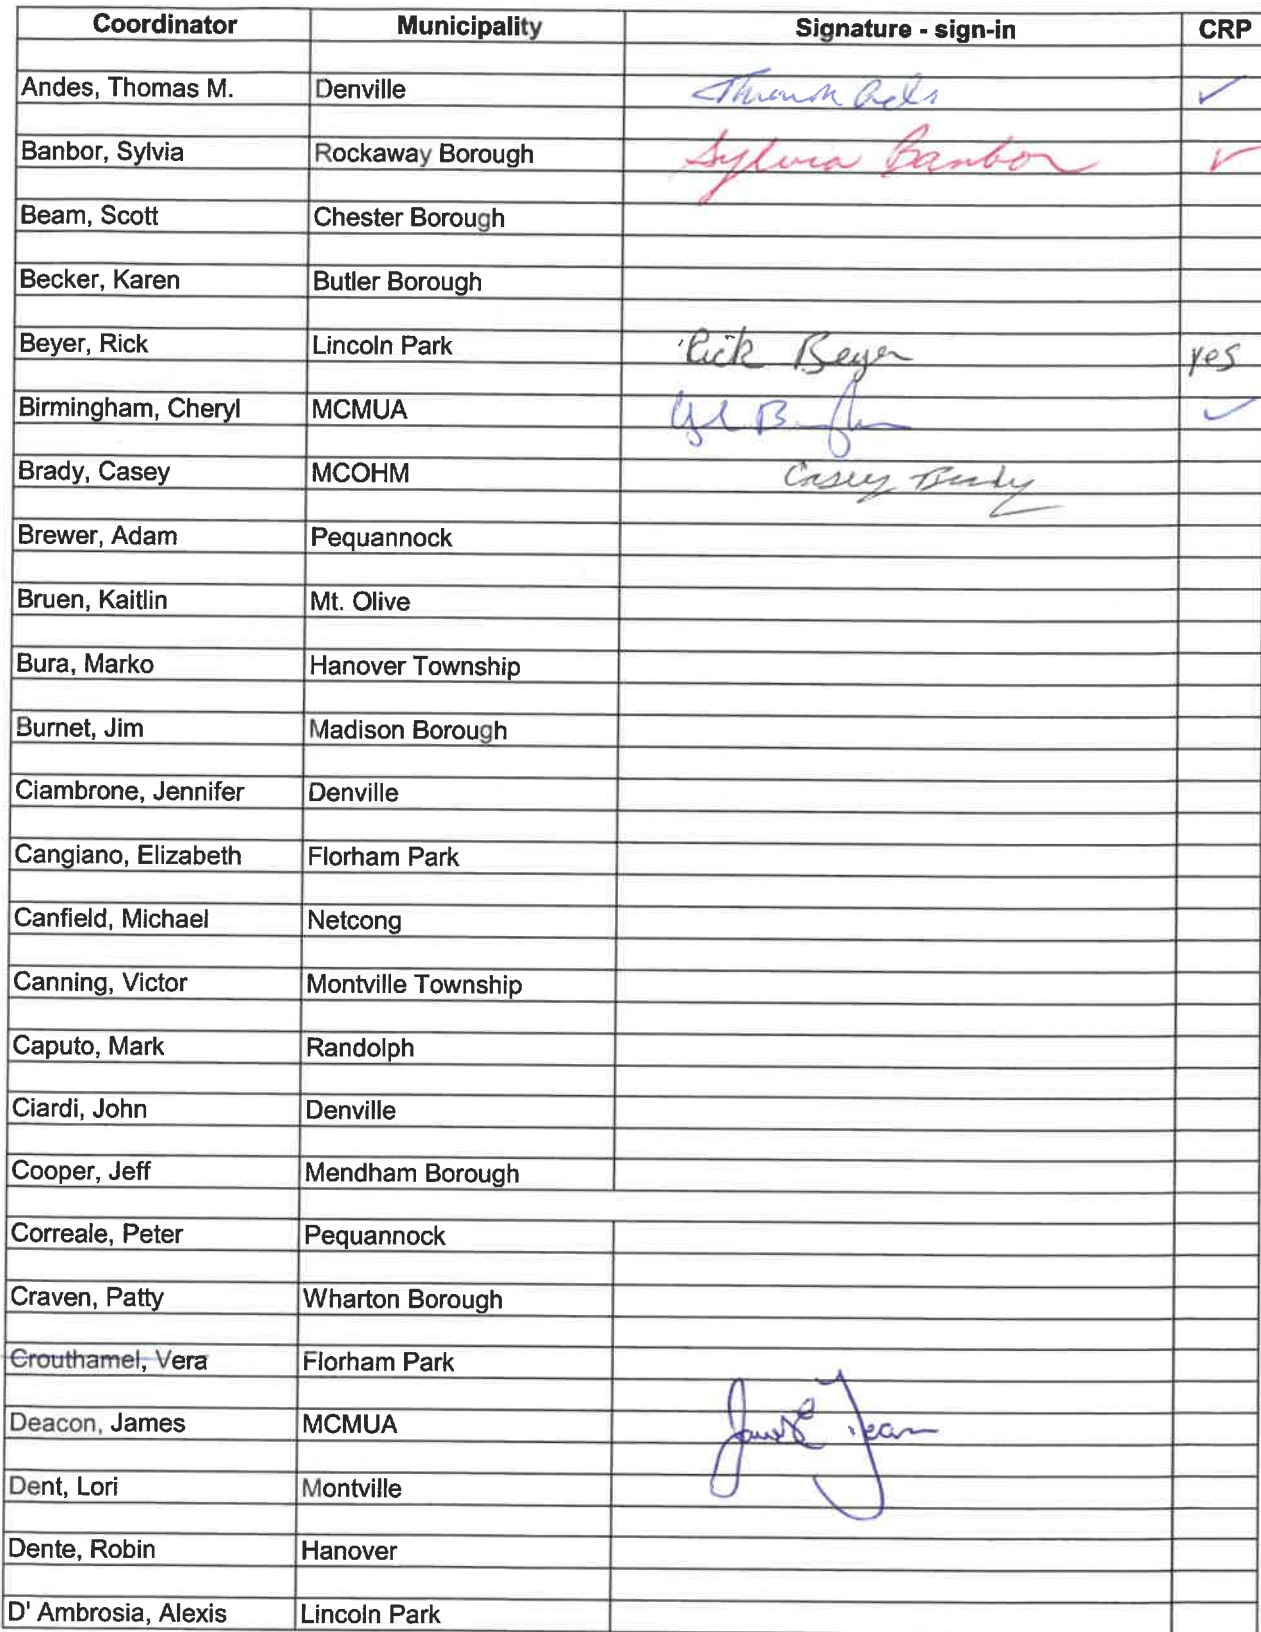 Coordinator Municipality Signature - sign-in CRP
Andes, Thomas M. Denville ✓
Banbor, Sylvia Rockaway Borough Sylvia Banbor ✓
Beam, Scott Chester Borough
Becker, Karen Butler Borough
Beyer, Rick Lincoln Park Rick Beyer yes
Birmingham, Cheryl MCMUA ✓
Brady, Casey MCOHM Casey Brady
Brewer, Adam Pequannock
Bruen, Kaitlin Mt. Olive
Bura, Marko Hanover Township
Burnet, Jim Madison Borough
Ciambrone, Jennifer Denville
Cangiano, Elizabeth Florham Park
Canfield, Michael Netcong
Canning, Victor Montville Township
Caputo, Mark Randolph
Ciardi, John Denville
Cooper, Jeff Mendham Borough
Correale, Peter Pequannock
Craven, Patty Wharton Borough
Crouthamel, Vera Florham Park
Deacon, James MCMUA
Dent, Lori Montville
Dente, Robin Hanover
D' Ambrosia, Alexis Lincoln Park